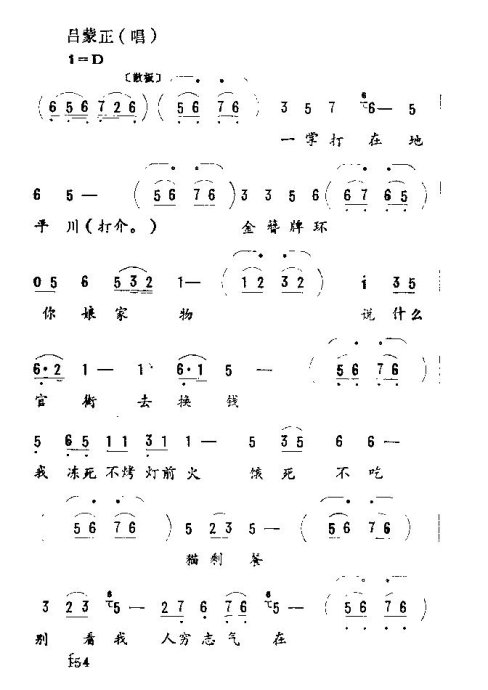 吕蒙正（唱）
1=D
〔散板〕
(656 726)(56 76) 3 5 7 6 6— 5
一掌打在地
6 5— (56 76) 3 3 5 6 (67 65)
平川（打介。） 金簪牌环
05 6 532 1— (12 32) i 35
你娘家物 说什么
6·2 1— 1 6·1 5 — (56 76)
官街去换钱
5 65 11 31 1— 5 35 6 6—
我冻死不烤灯前火 饿死不吃
(56 76) 5 23 5 — (56 76)
猫剩餐
3 23 6 5— 27 6 76 6 5— (56 76)
别看我人穷志气在
154